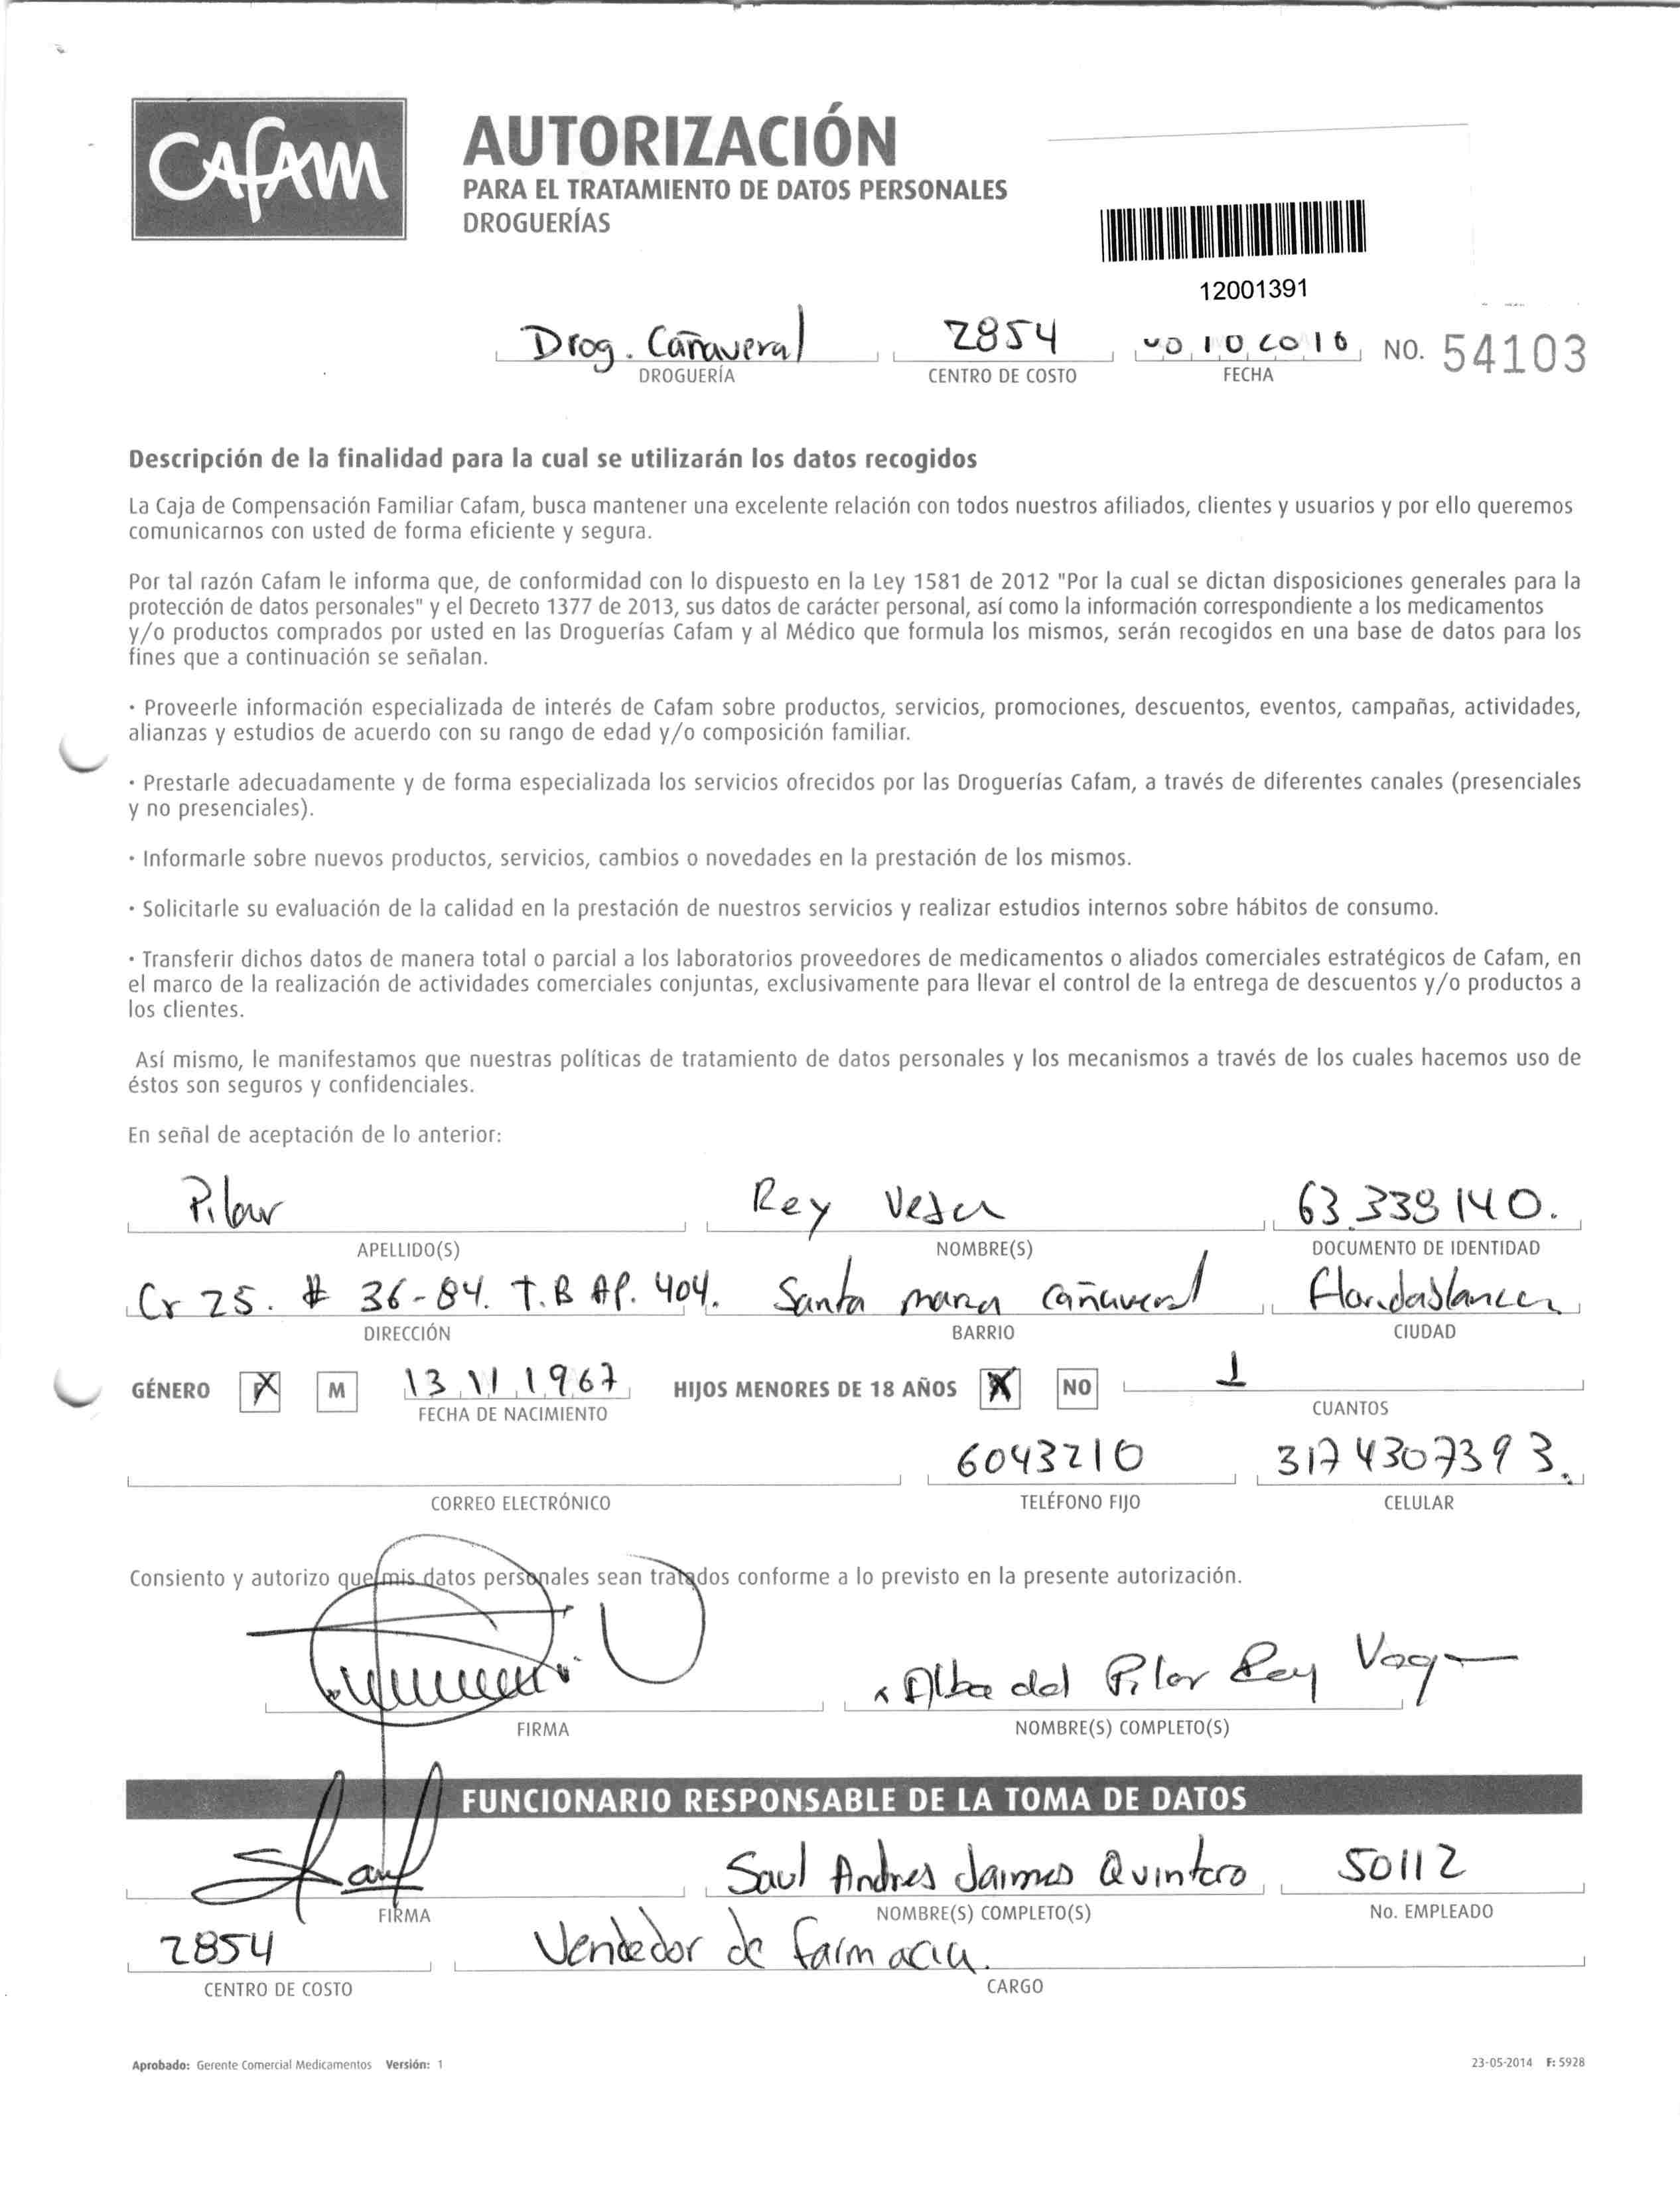 Cafam
AUTORIZACIÓN
PARA EL TRATAMIENTO DE DATOS PERSONALES
DROGUERÍAS
12001391
Drog. Cañaveral 2854 NO. 54103
DROGUERÍA CENTRO DE COSTO FECHA
Descripción de la finalidad para la cual se utilizarán los datos recogidos
La Caja de Compensación Familiar Cafam, busca mantener una excelente relación con todos nuestros afiliados, clientes y usuarios y por ello queremos
comunicarnos con usted de forma eficiente y segura.
Por tal razón Cafam le informa que, de conformidad con lo dispuesto en la Ley 1581 de 2012 "Por la cual se dictan disposiciones generales para la
protección de datos personales" y el Decreto 1377 de 2013, sus datos de carácter personal, así como la información correspondiente a los medicamentos
y/o productos comprados por usted en las Droguerías Cafam y al Médico que formula los mismos, serán recogidos en una base de datos para los
fines que a continuación se señalan.
· Proveerle información especializada de interés de Cafam sobre productos, servicios, promociones, descuentos, eventos, campañas, actividades,
alianzas y estudios de acuerdo con su rango de edad y/o composición familiar.
· Prestarle adecuadamente y de forma especializada los servicios ofrecidos por las Droguerías Cafam, a través de diferentes canales (presenciales
y no presenciales).
· Informarle sobre nuevos productos, servicios, cambios o novedades en la prestación de los mismos.
· Solicitarle su evaluación de la calidad en la prestación de nuestros servicios y realizar estudios internos sobre hábitos de consumo.
· Transferir dichos datos de manera total o parcial a los laboratorios proveedores de medicamentos o aliados comerciales estratégicos de Cafam, en
el marco de la realización de actividades comerciales conjuntas, exclusivamente para llevar el control de la entrega de descuentos y/o productos a
los clientes.
Así mismo, le manifestamos que nuestras políticas de tratamiento de datos personales y los mecanismos a través de los cuales hacemos uso de
éstos son seguros y confidenciales.
En señal de aceptación de lo anterior:
Pilar Rey 63.339 140.
APELLIDO(S) NOMBRE(S) DOCUMENTO DE IDENTIDAD
Cr 25. # 36-84. T.B AP. 404. Santa maria cañaveral Floridablanca
DIRECCIÓN BARRIO CIUDAD
GÉNERO X M 13 11 1967 HIJOS MENORES DE 18 AÑOS X NO 1
FECHA DE NACIMIENTO CUANTOS
6043210 3174307393.
CORREO ELECTRÓNICO TELÉFONO FIJO CELULAR
Consiento y autorizo que mis datos personales sean tratados conforme a lo previsto en la presente autorización.
x Alba del Pilar Rey
FIRMA NOMBRE(S) COMPLETO(S)
FUNCIONARIO RESPONSABLE DE LA TOMA DE DATOS
Saul Andres Jaimes Quintero 50112
FIRMA NOMBRE(S) COMPLETO(S) No. EMPLEADO
2854 Vendedor de farmacia.
CENTRO DE COSTO CARGO
Aprobado: Gerente Comercial Medicamentos Versión: 1 23-05-2014 F: 5928